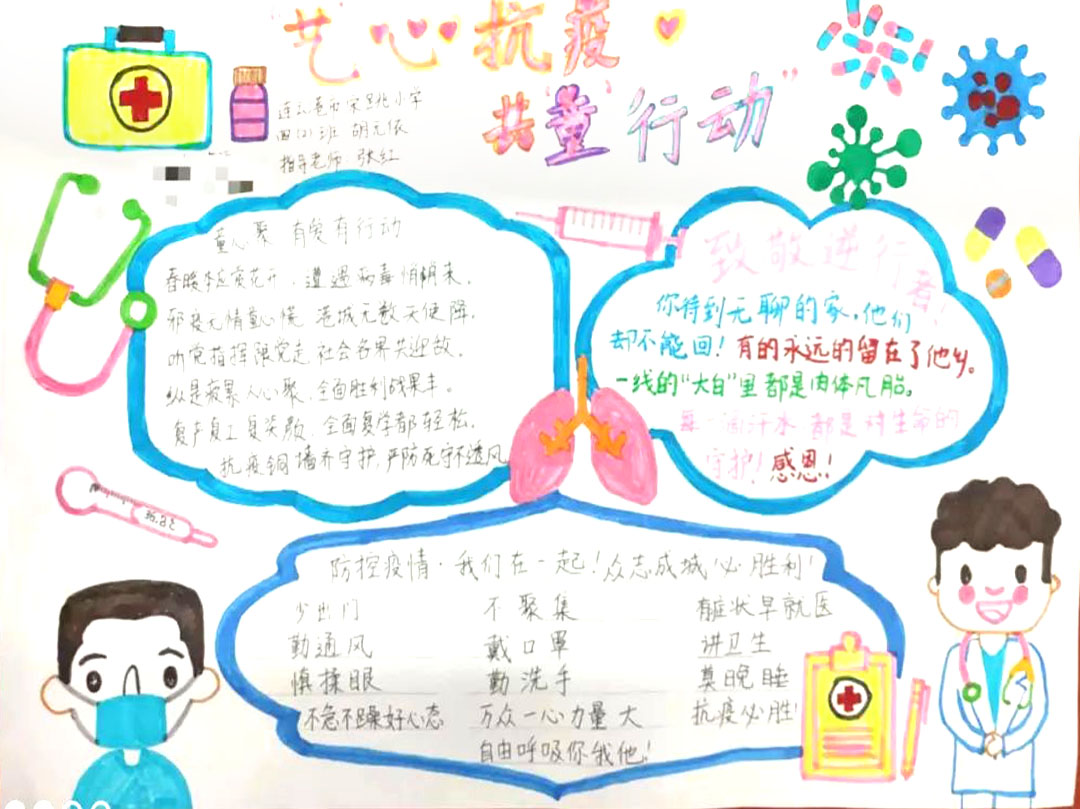 “艺”心抗疫
共“童”行动”
连云港市宋跳小学
四(2)班 胡元依
指导老师 张红
童心聚 有爱有行动
春暖李应觉花开，遭遇病毒悄帆来。
邪疫无情勤心慌 港城无数天使降，
听党指挥跟党走 社会各界共迎敌。
纵是疲累人心聚，全面胜利战果丰。
复产复工复笑颜，全面复学都轻松。
抗疫铜墙齐守护，严防死守不透风
致敬逆行者！
你待到无聊的家，他们
却不能回！有的永远的留在了他乡。
一线的“大白”里都是肉体凡胎。
每一滴汗水，都是对生命的
守护！感恩！
36.8℃
防控疫情·我们在一起！众志成城必胜利！
少出门 不聚集 有症状早就医
勤通风 戴口罩 讲卫生
慎揉眼 勤洗手 莫晚睡
不急不躁好心态 万众一心力量大 抗疫必胜！
自由呼吸你我他！